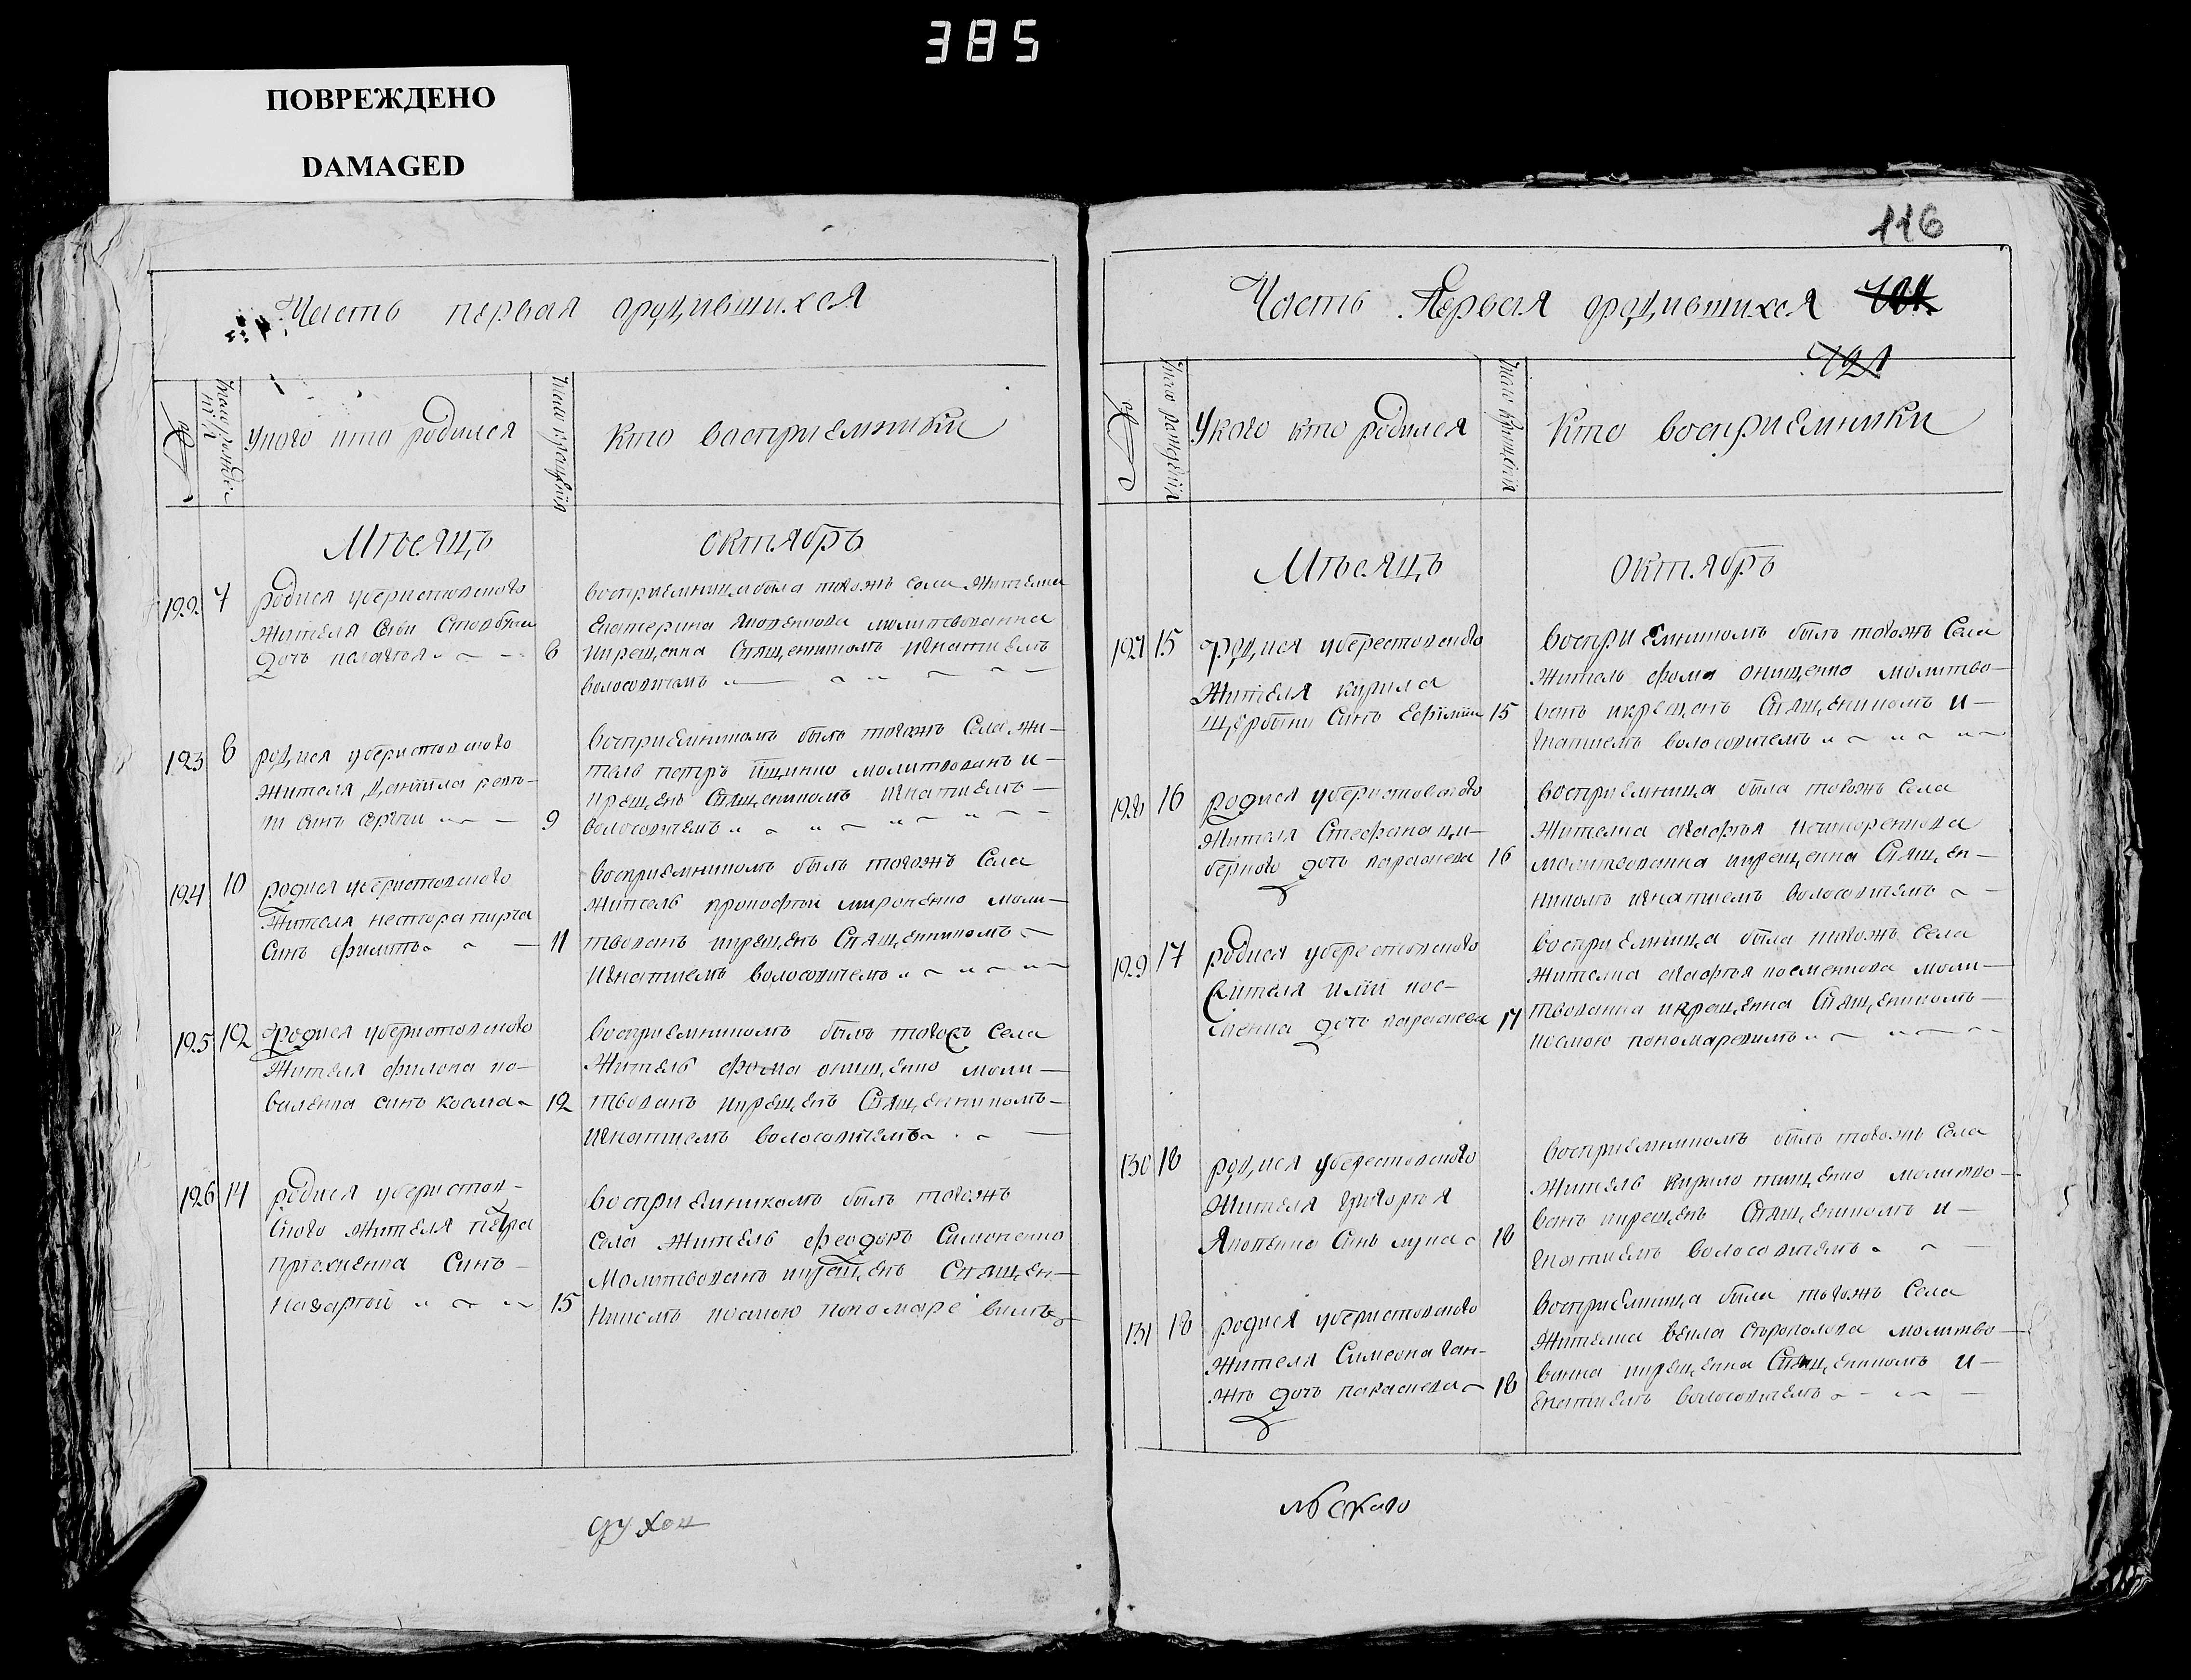 385
ПОВРЕЖДЕНО
DAMAGED
Часть первая ородившихся
№
Число рожденія
У кого кто родился
Число крещенія
Кто восприемники
Мѣсяцъ
октябрь
122 7
родися уберистовского
жителя
дочь пелагея
8
восприемница была тогожъ села жителка
Екатерина молитвованна
икрещенна Священникомъ Игнатиемъ
волосовичемъ
123 8
родися уберистовского
жителя Данііла репъ-
ки синъ сергіи
9
восприемникомъ былъ тогожъ Села жи-
тель петръ молитвованъ и-
крещенъ Священикомъ Игнатиемъ
волосовичемъ
124 10
родися уберистовского
жителя нестора пирга
Синъ филипъ
11
восприемникомъ былъ тогожъ Села
житель прокофій мироненко моли-
твованъ икрещенъ Священникомъ
Игнатиемъ волосовичемъ
125 12
родися уберистовского
жителя филона ко-
валенка синъ косма
12
восприемникомъ былъ тогожъ Села
житель фома онищенко моли-
твованъ икрещенъ Священникомъ
Игнатиемъ волосовичемъ
126 14
родися уберистов-
ского жителя петра
Синъ
назарій
15
восприемникомъ былъ тогожъ
села житель феодоръ Симоненко
Молитвованъ икрещенъ Священ-
никомъ космою пономаревимъ
духов
116
Часть Первая ородившихся
121
№
Число рожденія
У кого кто родился
Число крещенія
Кто восприемники
Мѣсяцъ
Октябрь
127 15
родися уберестовского
жителя курила
щербини Синъ Еѳфимии
15
восприемникомъ былъ тогожъ Села
житель фома онищенко молитво-
ванъ икрещенъ Священикомъ и-
гнатиемъ волосовичемъ
128 16
родися уберистовского
жителя Стефана цим-
берного дочь параскева
16
восприемница была тогожъ Села
жителка агафія
молитвованна икрещенна Священ-
никомъ игнатиемъ волосовичемъ
129 17
родися уберестовского
жителя иліи кос-
менка дочь параскева
17
восприемница была тогожъ Села
жителка агафія косменкова моли-
твованна икрещенна Священикомъ
космою пономаревимъ
130 18
родися уберестовского
жителя григорія
Яковенка Синъ лука
18
восприемникомъ былъ тогожъ Села
житель кирило тищенко молитво-
ванъ икрещенъ Священикомъ и-
гнатиемъ волосовичемъ
131 18
родися уберистовского
жителя Симеона ган-
жи дочь параскева
18
восприемница была тогожъ Села
жителка молитво-
ванна икрещенна Священикомъ и-
гнатиемъ волосовичемъ
ского